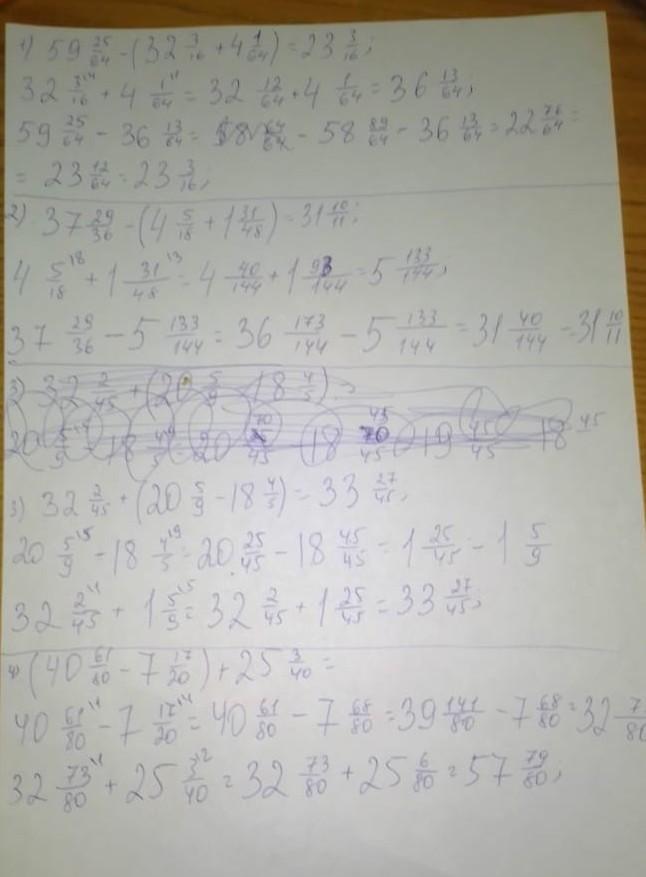 1) 59 25/64 - (32 3/16 + 4 1/64) = 23 3/16;
32 3/16 + 4 1/64 = 32 12/64 + 4 1/64 = 36 13/64;
59 25/64 - 36 13/64 = 58 89/64 - 36 13/64 = 22 76/64 =
= 23 12/64 = 23 3/16;
2) 37 29/36 - (4 5/18 + 1 31/48) = 31 10/11;
4 5/18 + 1 31/48 = 4 40/144 + 1 93/144 = 5 133/144;
37 29/36 - 5 133/144 = 36 173/144 - 5 133/144 = 31 40/144 = 31 10/11
3) 32 2/45 + (20 5/9 - 18 4/5) =
3) 32 2/45 + (20 5/9 - 18 4/5) = 33 27/45;
20 5/9 - 18 4/5 = 20 25/45 - 18 45/45 = 1 25/45 - 1 5/9
32 2/45 + 1 5/9 = 32 2/45 + 1 25/45 = 33 27/45;
4) (40 61/80 - 7 17/20) + 25 3/40 =
40 61/80 - 7 17/20 = 40 61/80 - 7 68/80 = 39 141/80 - 7 68/80 = 32 7/80
32 73/80 + 25 3/40 = 32 73/80 + 25 6/80 = 57 79/80;